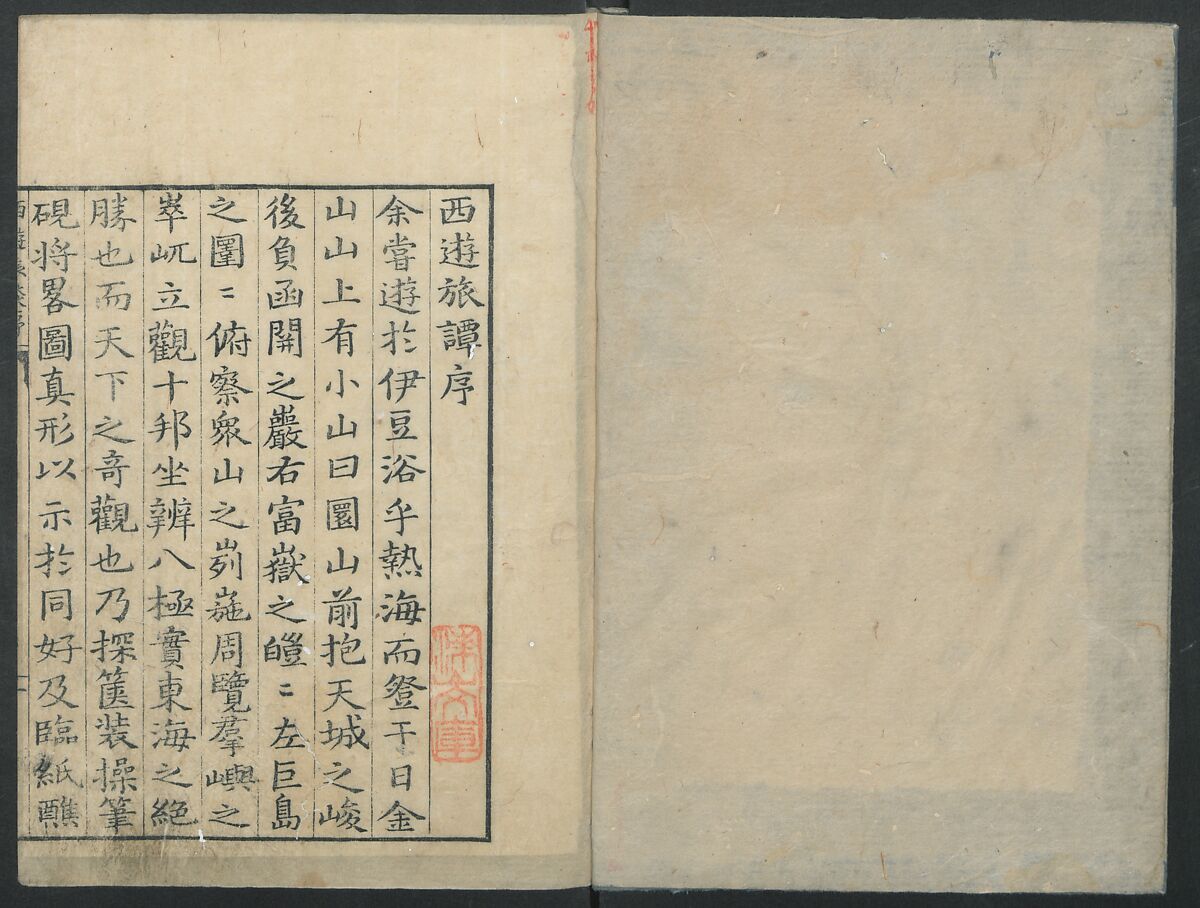 西遊旅譚序
余嘗遊於伊豆浴乎熱海而登于日金
山山上有小山曰圓山前抱天城之峻
後負函關之巖右富嶽之皚〻左巨島
之圍〻俯察衆山之峛崺周覽羣嶼之
崒屼立觀十邦坐辨八極實東海之絶
勝也而天下之奇觀也乃探篋装操筆
硯将畧圖真形以示於同好及臨紙醮